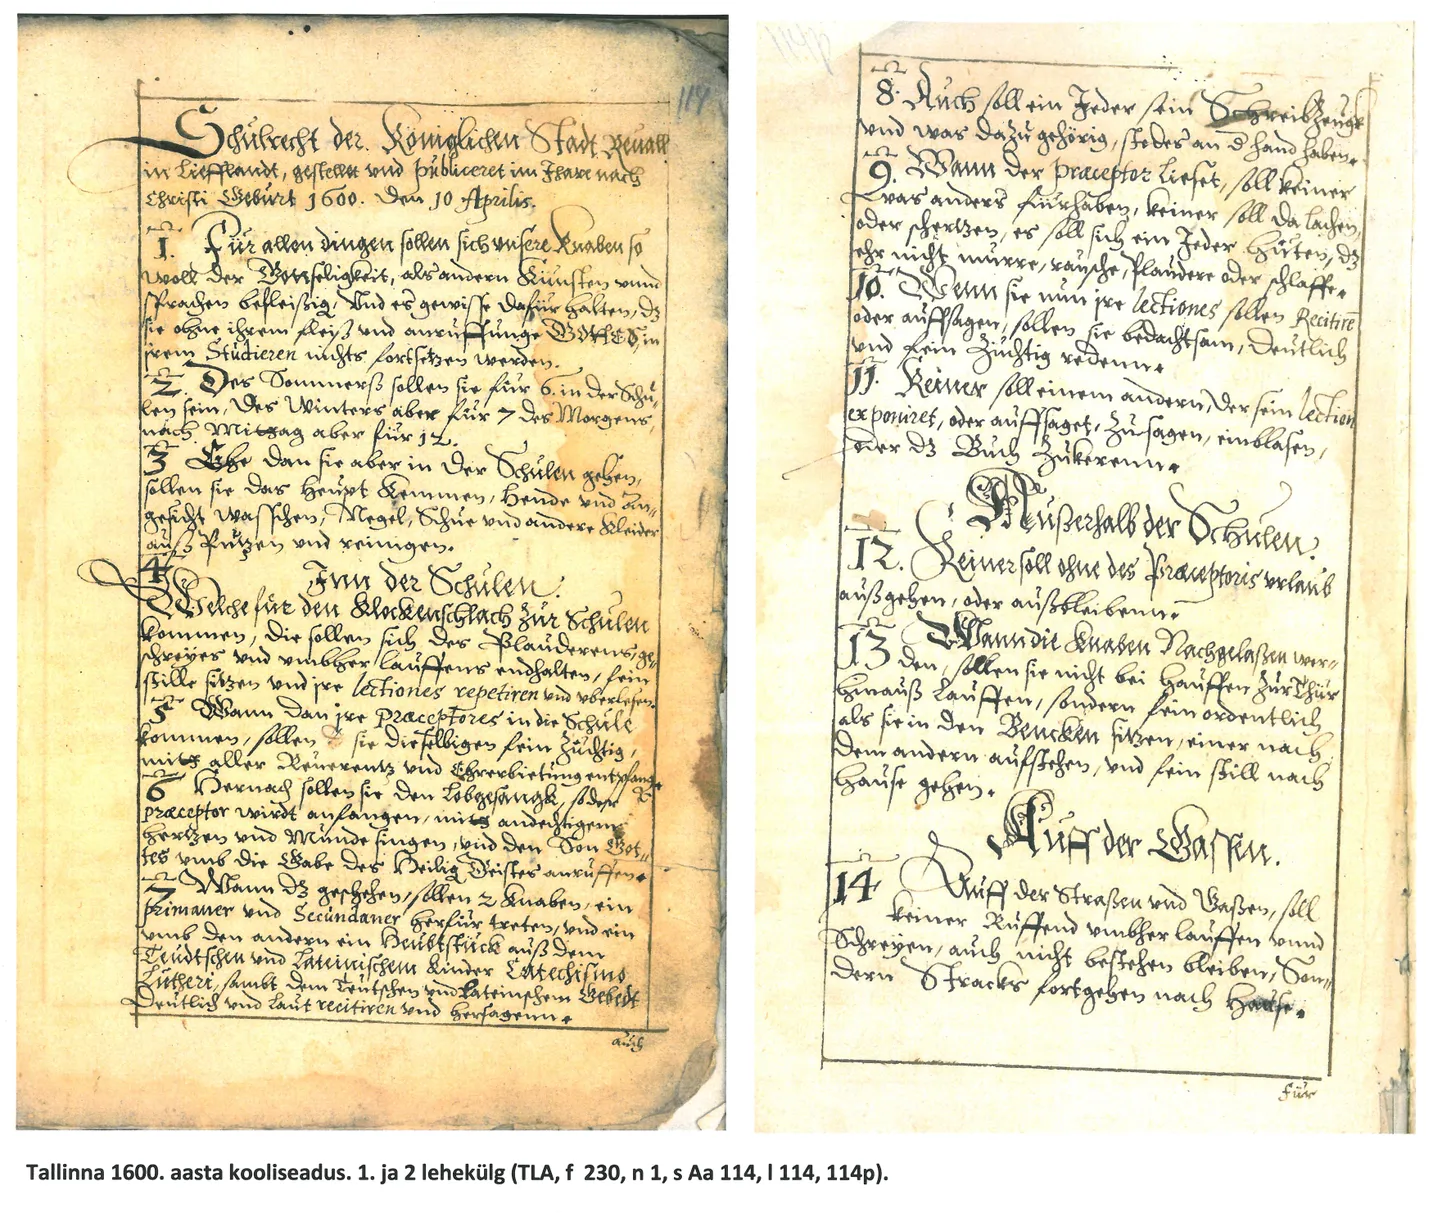 114
Schulrecht der Königlichen Stadt Reuall
in Liefflandt, gestellet vnd publiceret im Ihare nach
Christi Geburt 1600. Den 10 Aprilis.
1. Für allen dingen sollen sich vnsere Knaben so
woll der Gottseligkeit, als andern Künsten vnnd
sprachen befleißig, Vnd es gewisse dafür halten, dz
sie ohne ihrem fleiß vnd anruffunge GOttes, in
irem Studieren nichts fortsetzen werden.
2. Des Sommerß sollen sie für 6. in der Schu-
len sein, Des Winters aber für 7 des Morgens,
nach Mittag aber für 12.
3 Ehe dan sie aber in der Schulen gehen,
sollen sie das Heupt Kemmen, Hende vnd An-
gesicht wasschen, Negel, Schue vnd andere Kleider
auß putzen vnd reinigen.
4 Inn der Schulen.
Welche für den Klockenschlach zur Schulen
kommen, die sollen sich des Plauderens, ge-
schreyes vnd vmbher lauffens endhalten, fein
stille sitzen vnd ire lectiones repetiren vnd vberlesen.
5 Wann dan ire Præceptores in die Schule
kommen, sollen sie dieselbigen fein züchtig,
mitt aller Reuerentz vnd Ehrerbietung entpfange
6 Hernach sollen sie den Lobgesangk, so der
præceptor wirdt anfangen, mitt andechtigem
hertzen vnd Munde singen, vnd den Son Got-
tes vmb die Gabe des Heilig Geistes anruffen.
7 Wann dz geschehen, sollen 2 Knaben, ein
primaner vnd Secundaner herfür treten, vnd ein
vmb den andern ein Heubtstück auß dem
Teudtschen vnd Lateinischem Kinder Catechismo
Lutheri, sambt dem Teutschen vnd Lateinschem Gebedt
Deutlich vnd laut recitiren vnd hersagenn.
auch
114p
8. Auch soll ein Jeder sein Schreibzeugk
vnd was dazu gehörig, stedes an d hand haben.
9. Wann der præceptor lieset, soll keiner
was anders fürhaben, keiner soll da lachen,
oder schertzen, es soll sich ein Jeder hüten, dz
ehr nicht murre, rausche, plaudere oder schlaffe.
10. Wenn sie nun ire lectiones sollen Recitire
oder auffsagen, sollen sie bedachtsam, deutlich
vnd fein züchtig redenn.
11. Keiner soll einem andern, der sein lection
exponiret, oder auffsaget, zu sagen, einblasen,
oder dz Buch zukerenn.
Außerhalb der Schulen.
12. Keiner soll ohne des Præceptoris vrlaub
außgehen, oder außbleibenn.
13 Wann die Knaben Nachgelaßen wer-
den, sollen sie nicht bei hauffen zur Thür
hinauß lauffen, sondern fein ordentlich
als sie in den Bencken sitzen, einer nach
dem andern aufstehen, vnd fein still nach
hause gehen.
Auff der Gassen.
14 Auff der Straßen vnd Gaßen, soll
keiner Ruffend vmbher lauffen vnnd
Schreyen, auch nicht bestehen bleiben, Son-
dern Stracks fortgehen nach Hause.
für
Tallinna 1600. aasta kooliseadus. 1. ja 2 lehekülg (TLA, f 230, n 1, s Aa 114, l 114, 114p).